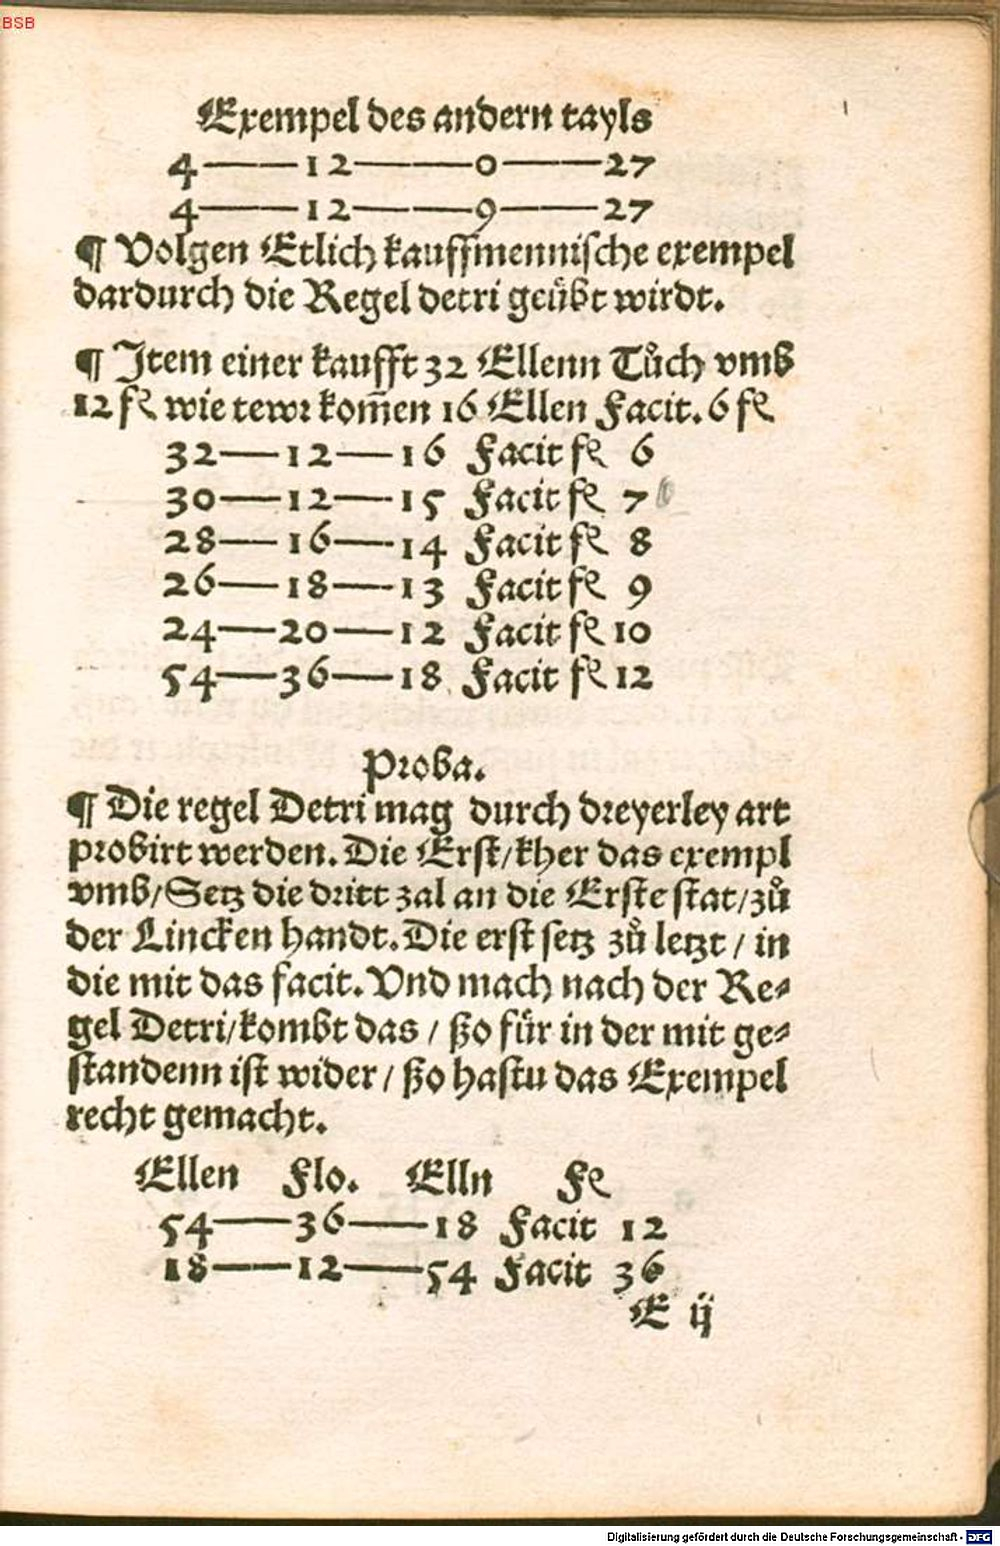 BSB
Exempel des andern tayls
4——12———0——27
4——12———9——27
¶ Volgen Etlich kauffmennische exempel
dardurch die Regel detri geübt wirdt.
¶ Item einer kaufft 32 Ellenn Tůch vmb
12 fl wie tewr kom̄en 16 Ellen Facit. 6 fl
32—12—16 Facit fl 6
30—12—15 Facit fl 7
28—16—14 Facit fl 8
26—18—13 Facit fl 9
24—20—12 Facit fl 10
54—36—18 Facit fl 12
Proba.
¶ Die regel Detri mag durch dreyerley art
probirt werden. Die Erst/kher das exempl
vmb/Setz die dritt zal an die Erste stat/zů
der Lincken handt. Die erst setz zů letzt / in
die mit das facit. Vnd mach nach der Re⸗
gel Detri/kombt das / ßo für in der mit ge⸗
standenn ist wider / ßo hastu das Exempel
recht gemacht.
Ellen Flo. Elln Fl
54——36——18 Facit 12
18——12——54 Facit 36
E ij
Digitalisierung gefördert durch die Deutsche Forschungsgemeinschaft - DFG